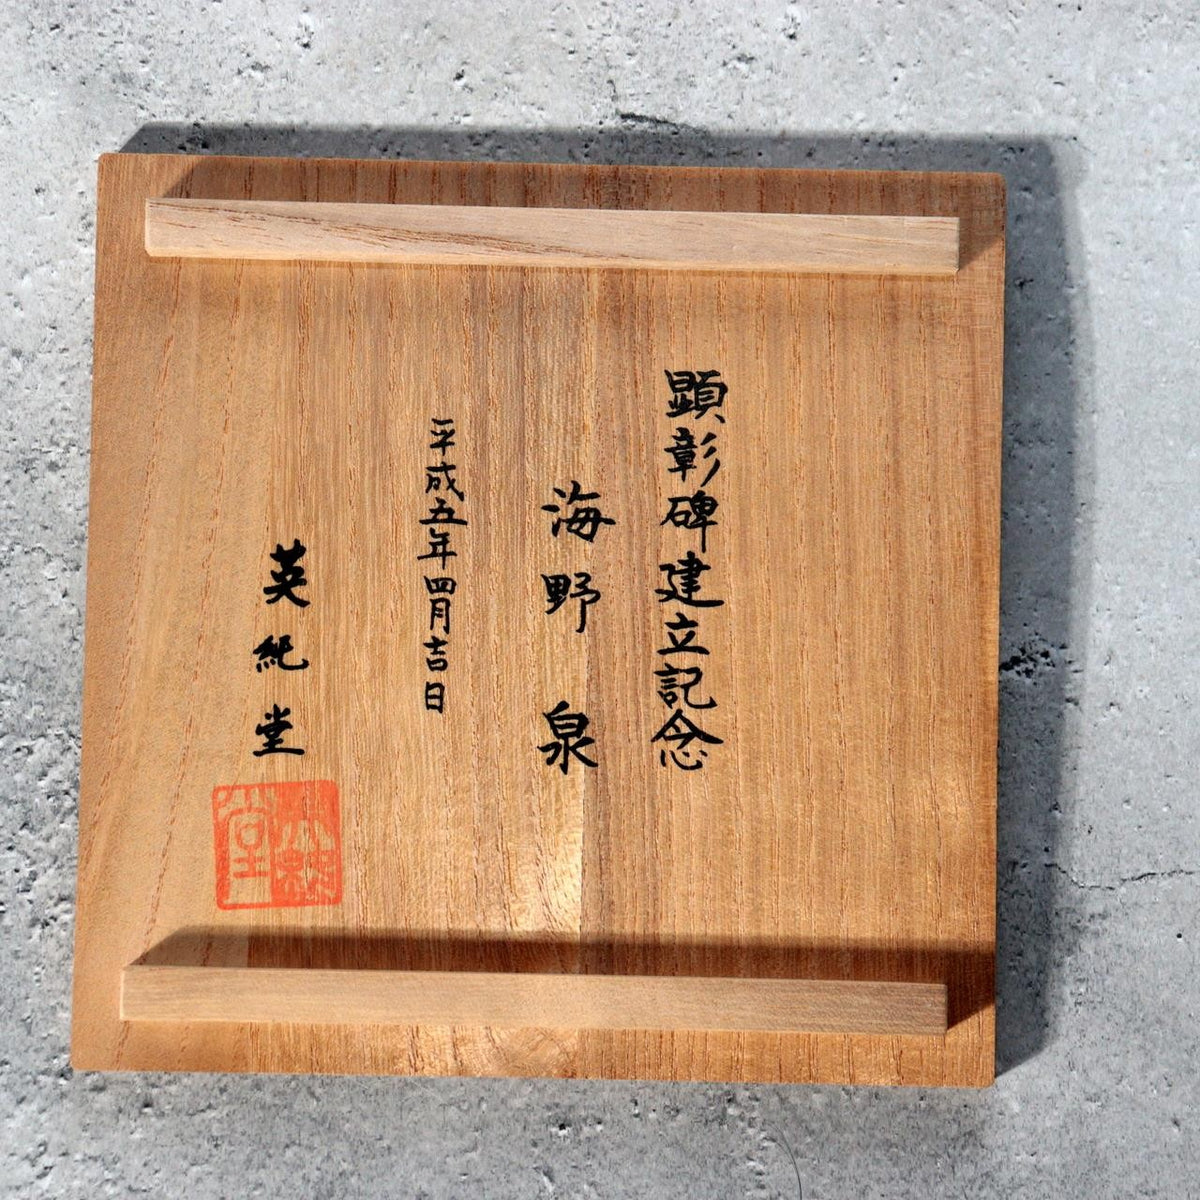 顕彰碑建立記念
海野泉
平成五年四月吉日
英純堂